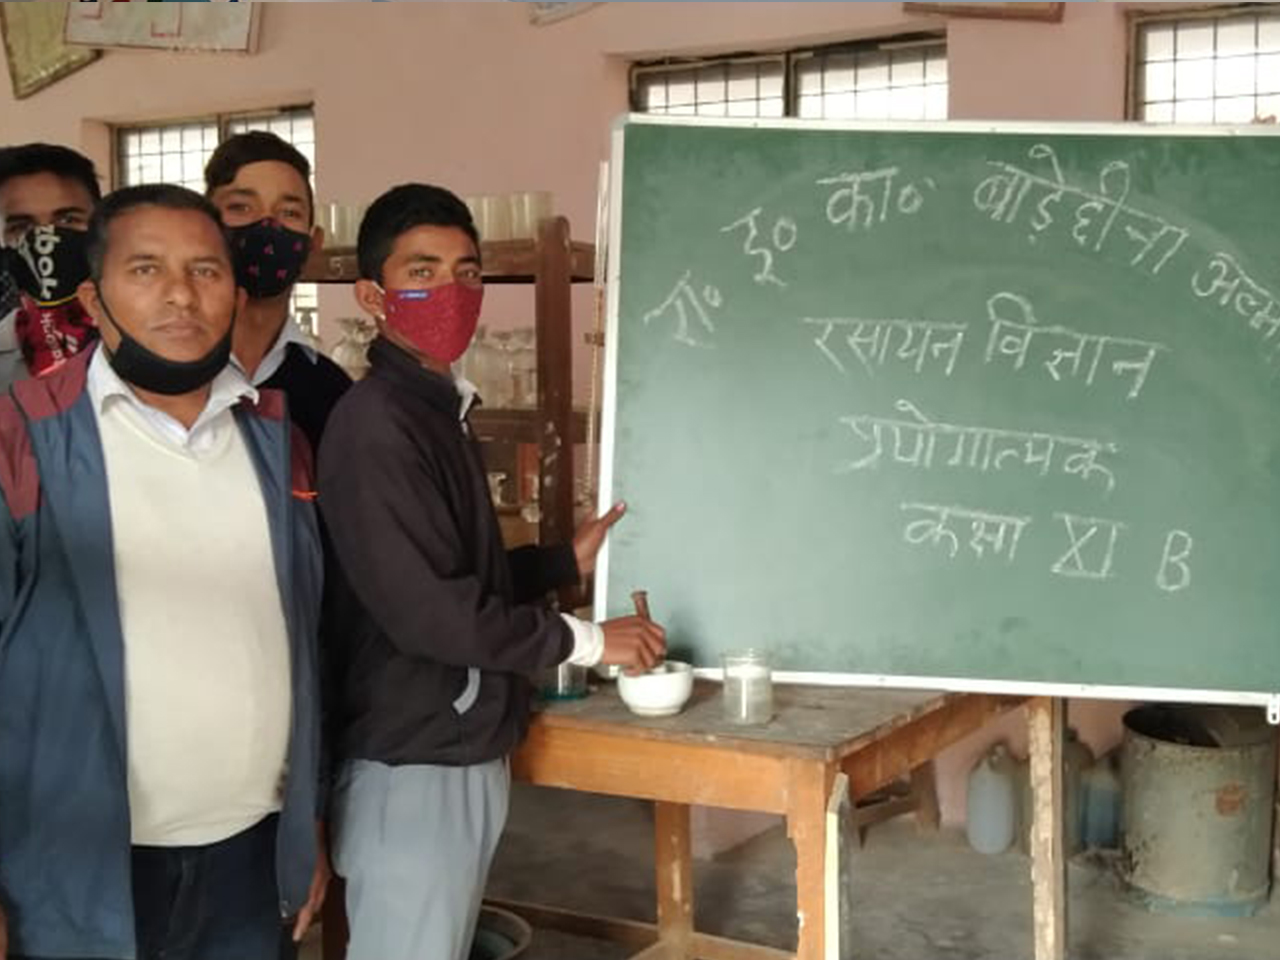 रा० इ० का० बाड़ेछीना अल्मो
रसायन विज्ञान
प्रयोगात्मक
कक्षा XI B